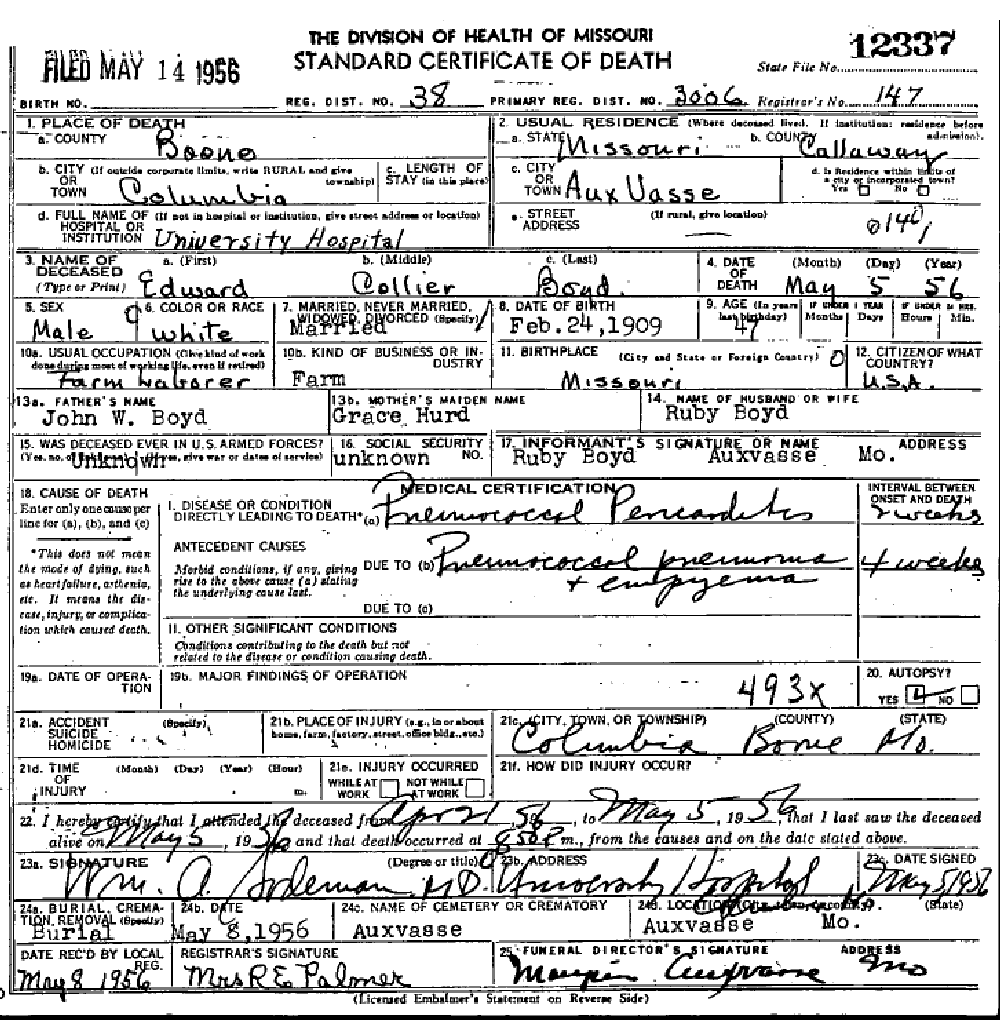 THE DIVISION OF HEALTH OF MISSOURI
STANDARD CERTIFICATE OF DEATH
FILED MAY 14 1956
12337
State File No.
BIRTH NO. REG. DIST. NO. 38 PRIMARY REG. DIST. NO. 3006 Registrar's No. 147
1. PLACE OF DEATH
a. COUNTY Boone
2. USUAL RESIDENCE (Where deceased lived. If institution: residence before admission).
a. STATE Missouri b. COUNTY Callaway
b. CITY (If outside corporate limits, write RURAL and give township) OR TOWN Columbia
c. LENGTH OF STAY (in this place)
c. CITY OR TOWN Aux Vasse
d. Is Residence within limits of a city or incorporated town? Yes No
d. FULL NAME OF (If not in hospital or institution, give street address or location) HOSPITAL OR INSTITUTION University Hospital
e. STREET ADDRESS (If rural, give location)
3. NAME OF DECEASED (Type or Print)
a. (First) b. (Middle) c. (Last)
Edward Collier Boyd
4. DATE OF DEATH (Month) (Day) (Year)
May 5 56
5. SEX
Male
6. COLOR OR RACE
White
7. MARRIED, NEVER MARRIED, WIDOWED, DIVORCED (Specify)
Married
8. DATE OF BIRTH
Feb. 24, 1909
9. AGE (In years last birthday) 47
IF UNDER 1 YEAR Months Days
IF UNDER 24 HRS. Hours Min.
10a. USUAL OCCUPATION (Give kind of work done during most of working life, even if retired)
Farm Laborer
10b. KIND OF BUSINESS OR INDUSTRY
Farm
11. BIRTHPLACE (City and State or Foreign Country)
Missouri
12. CITIZEN OF WHAT COUNTRY?
U.S.A.
13a. FATHER'S NAME
John W. Boyd
13b. MOTHER'S MAIDEN NAME
Grace Hurd
14. NAME OF HUSBAND OR WIFE
Ruby Boyd
15. WAS DECEASED EVER IN U.S. ARMED FORCES?
(Yes, no, or unknown) (If yes, give war or dates of service)
Unknown
16. SOCIAL SECURITY NO.
unknown
17. INFORMANT'S SIGNATURE OR NAME ADDRESS
Ruby Boyd Auxvasse Mo.
18. CAUSE OF DEATH
Enter only one cause per line for (a), (b), and (c)
*This does not mean the mode of dying, such as heart failure, asthenia, etc. It means the disease, injury, or complication which caused death.
MEDICAL CERTIFICATION
INTERVAL BETWEEN ONSET AND DEATH
I. DISEASE OR CONDITION DIRECTLY LEADING TO DEATH* (a) Pneumococcal Pericarditis
2 weeks
ANTECEDENT CAUSES
Morbid conditions, if any, giving rise to the above cause (a) stating the underlying cause last.
DUE TO (b) Pneumococcal pneumonia + empyema
4 weeks
DUE TO (c)
II. OTHER SIGNIFICANT CONDITIONS
Conditions contributing to the death but not related to the disease or condition causing death.
19a. DATE OF OPERATION
19b. MAJOR FINDINGS OF OPERATION
493X
20. AUTOPSY?
YES NO
21a. ACCIDENT SUICIDE HOMICIDE (Specify)
21b. PLACE OF INJURY (e.g., in or about home, farm, factory, street, office bldg., etc.)
21c. (CITY, TOWN, OR TOWNSHIP) (COUNTY) (STATE)
Columbia Boone Mo.
21d. TIME OF INJURY (Month) (Day) (Year) (Hour) m.
21e. INJURY OCCURRED
WHILE AT WORK NOT WHILE AT WORK
21f. HOW DID INJURY OCCUR?
22. I hereby certify that I attended the deceased from Apr 21, 56, to May 5 56, 195, that I last saw the deceased
alive on May 5, 1956 and that death occurred at 8:50 P m., from the causes and on the date stated above.
23a. SIGNATURE (Degree or title)
Wm. A. M.D.
23b. ADDRESS
University Hospital
23c. DATE SIGNED
May 5 1956
24a. BURIAL, CREMATION, REMOVAL (Specify)
Burial
24b. DATE
May 8, 1956
24c. NAME OF CEMETERY OR CREMATORY
Auxvasse
24d. LOCATION (City, town, or county) (State)
Auxvasse Mo.
DATE REC'D BY LOCAL REG.
May 8 1956
REGISTRAR'S SIGNATURE
Mrs R E Palmer
25. FUNERAL DIRECTOR'S SIGNATURE ADDRESS
Maupin Auxvasse Mo
(Licensed Embalmer's Statement on Reverse Side)